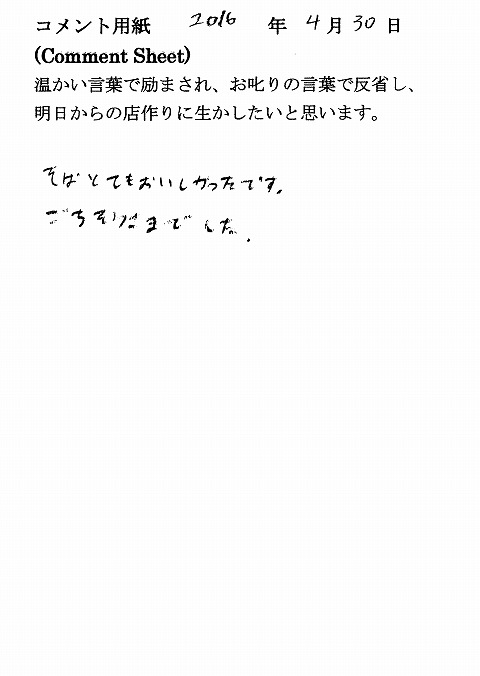 コメント用紙 2016 年 4月 30 日
(Comment Sheet)
温かい言葉で励まされ、お叱りの言葉で反省し、
明日からの店作りに生かしたいと思います。
そばとてもおいしかったです。
ごちそうさまでした.